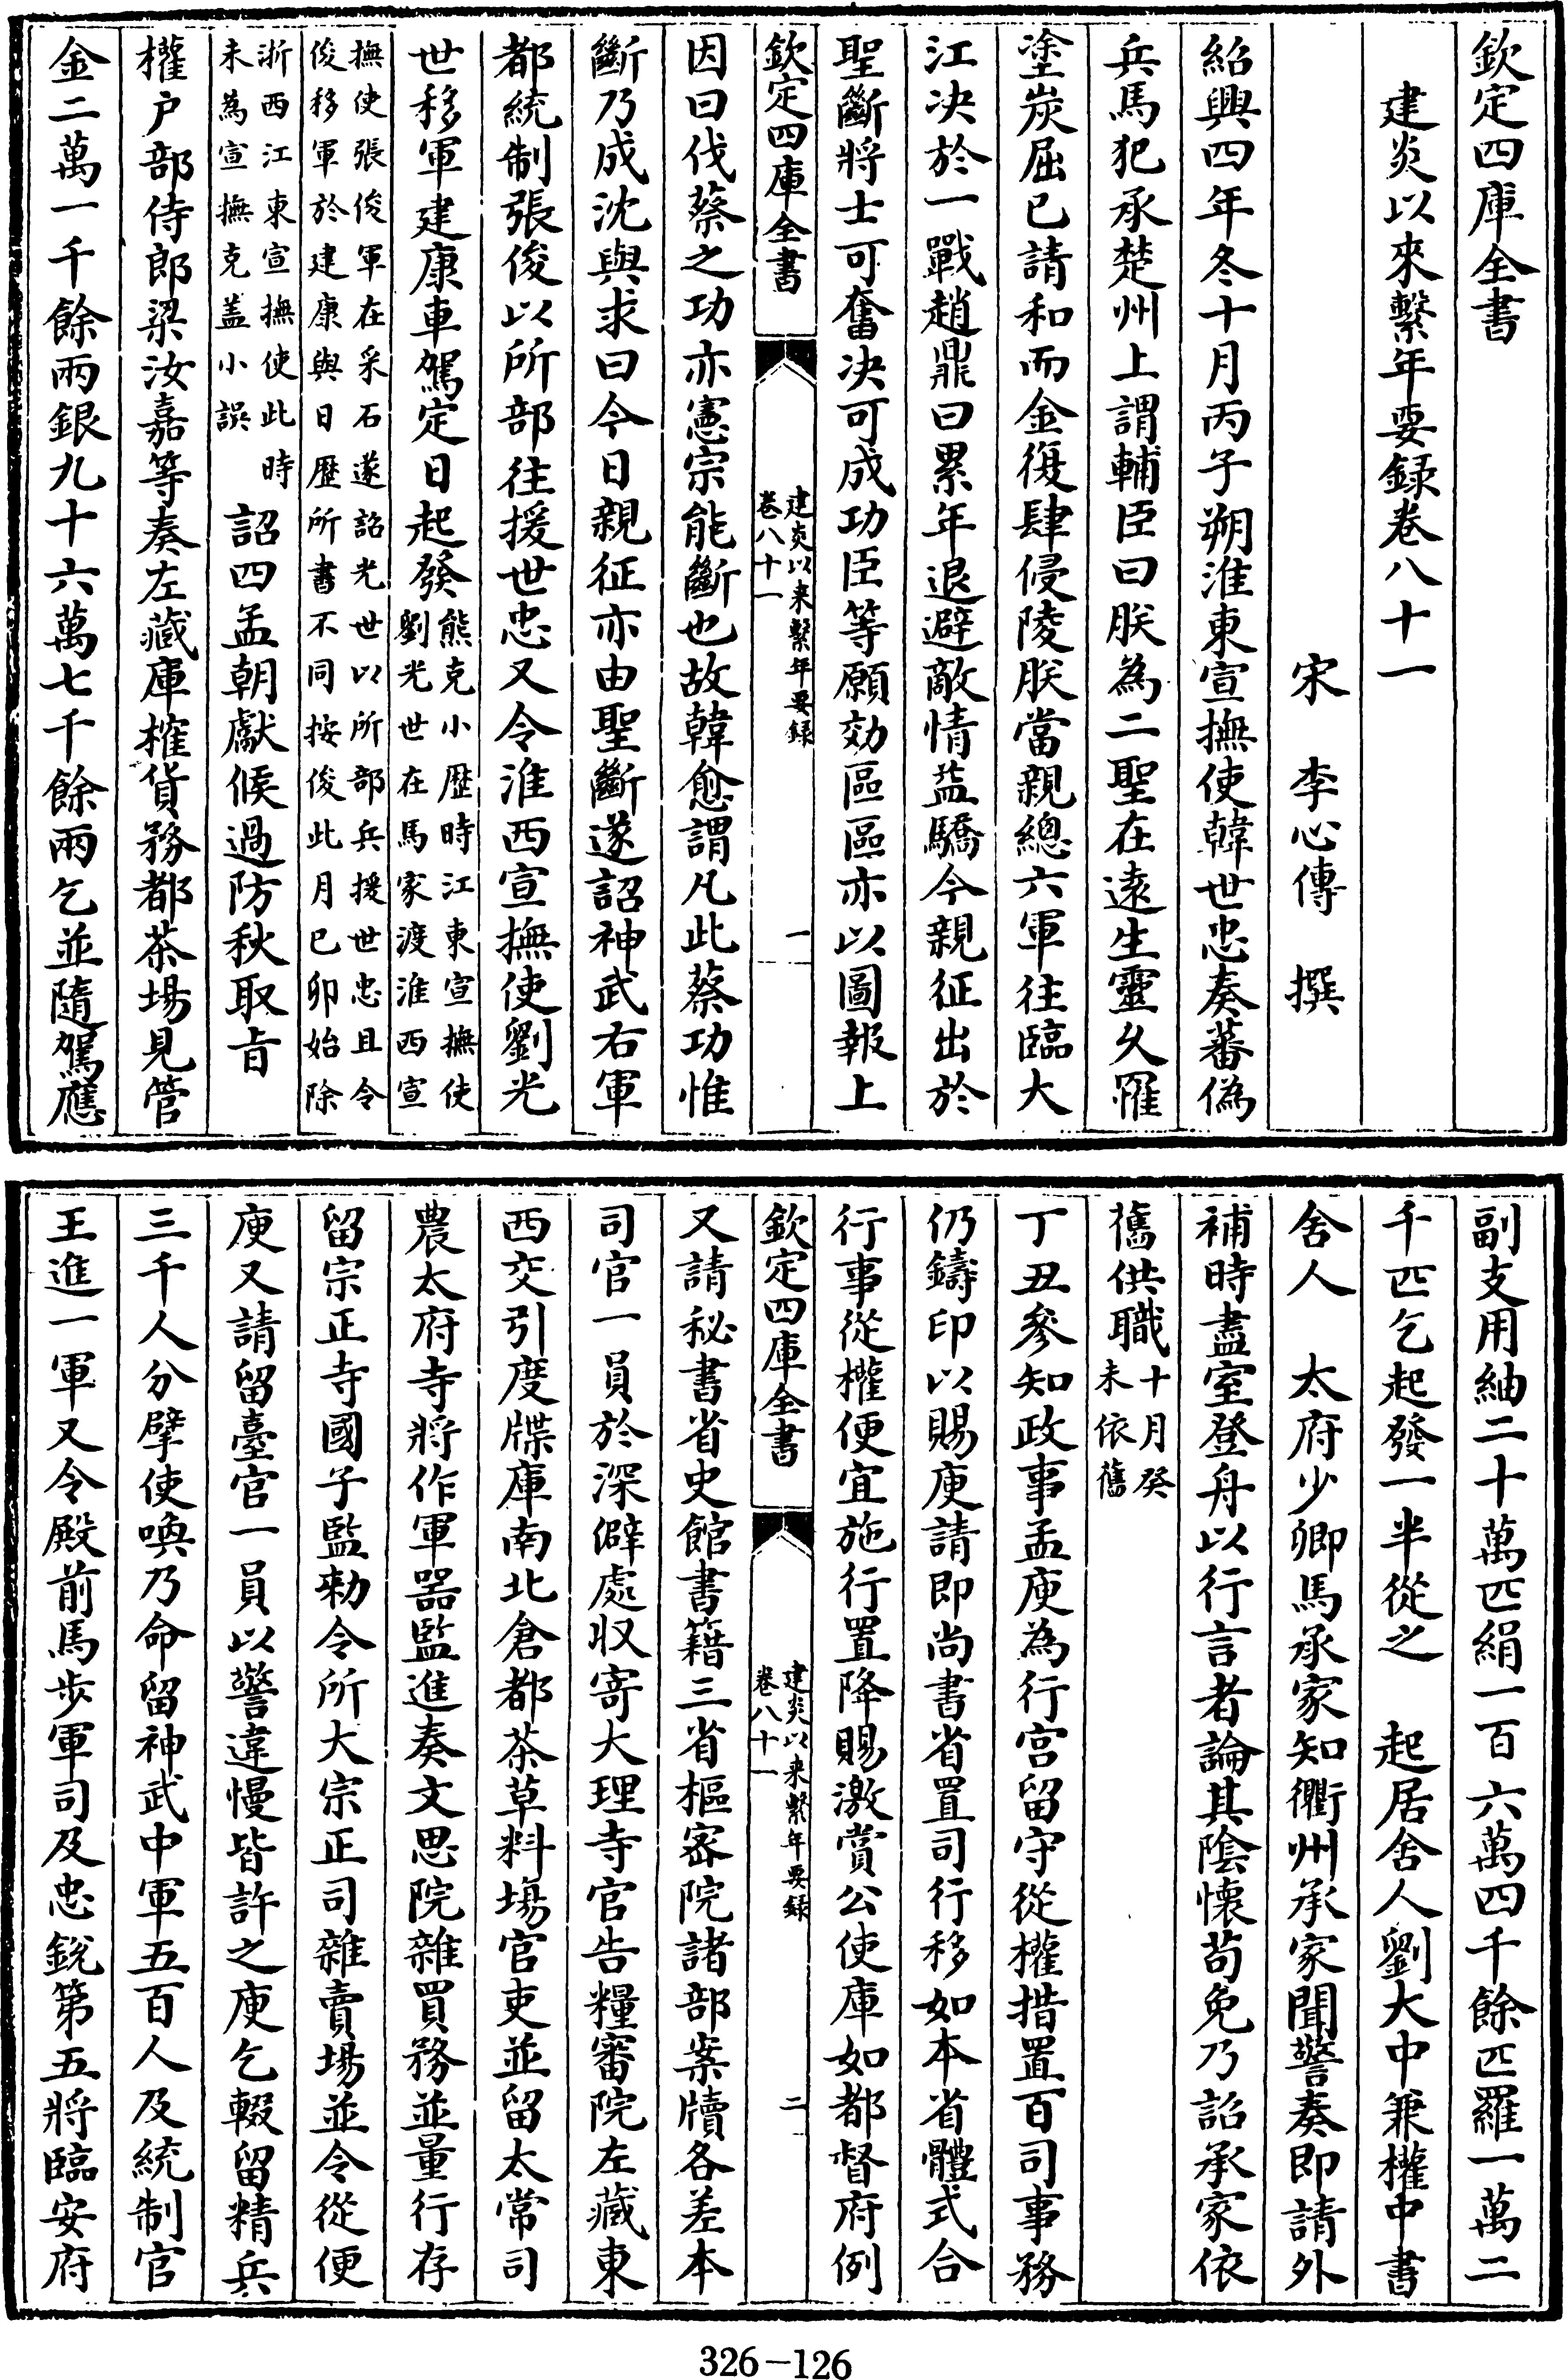 欽定四庫全書
建炎以來繫年要録卷八十一
宋 李心傳 撰
紹興四年冬十月丙子朔淮東宣撫使韓世忠奏蕃偽
兵馬犯承楚州上謂輔臣曰朕為二聖在逺生靈久罹
塗炭屈已請和而金復肆侵陵朕當親總六軍往臨大
江决於一戰趙鼎曰累年退避敵情益驕今親征出於
聖斷將士可奮决可成功臣等願効區區亦以圖報上
欽定四庫全書
建炎以来繫年要録
卷八十一
一
因曰伐蔡之功亦憲宗能斷也故韓愈謂凡此蔡功惟
斷乃成沈與求曰今日親征亦由聖斷遂詔神武右軍
都統制張俊以所部往援世忠又令淮西宣撫使劉光
世移軍建康車駕定日起發
熊克小歴時江東宣撫使
劉光世在馬家渡淮西宣
撫使張俊軍在采石遂詔光世以所部兵援世忠且令
俊移軍於建康與日歴所書不同按俊此月已卯始除
浙西江東宣撫使此時
未為宣撫克盖小誤
詔四孟朝獻候過防秋取㫖
權户部侍郎梁汝嘉等奏左藏庫榷貨務都茶場見管
金二萬一千餘兩銀九十六萬七千餘兩乞並隨駕應
副支用紬二十萬匹絹一百六萬四千餘匹羅一萬二
千匹乞起發一半從之 起居舍人劉大中兼權中書
舍人 太府少卿馬承家知衢州承家聞警奏即請外
補時盡室登舟以行言者論其陰懷苟免乃詔承家依
舊供職
十月癸
未依舊
丁丑參知政事孟庾為行宫留守從權措置百司事務
仍鑄印以賜庾請即尚書省置司行移如本省體式合
行事從權便宜施行置降賜激賞公使庫如都督府例
欽定四庫全書
建炎以来繫年要録
卷八十一
二
又請秘書省史館書籍三省樞宻院諸部案牘各差本
司官一員於深僻處収寄大理寺官告糧審院左藏東
西交引度牒庫南北倉都茶草料塲官吏並留太常司
農太府寺將作軍器監進奏文思院雜買務並量行存
留宗正寺國子監勅令所大宗正司雜賣場並令從便
庾又請留臺官一員以警違慢皆許之庾乞輟留精兵
三千人分擘使喚乃命留神武中軍五百人及統制官
王進一軍又令殿前馬步軍司及忠銳第五將臨安府
326-126